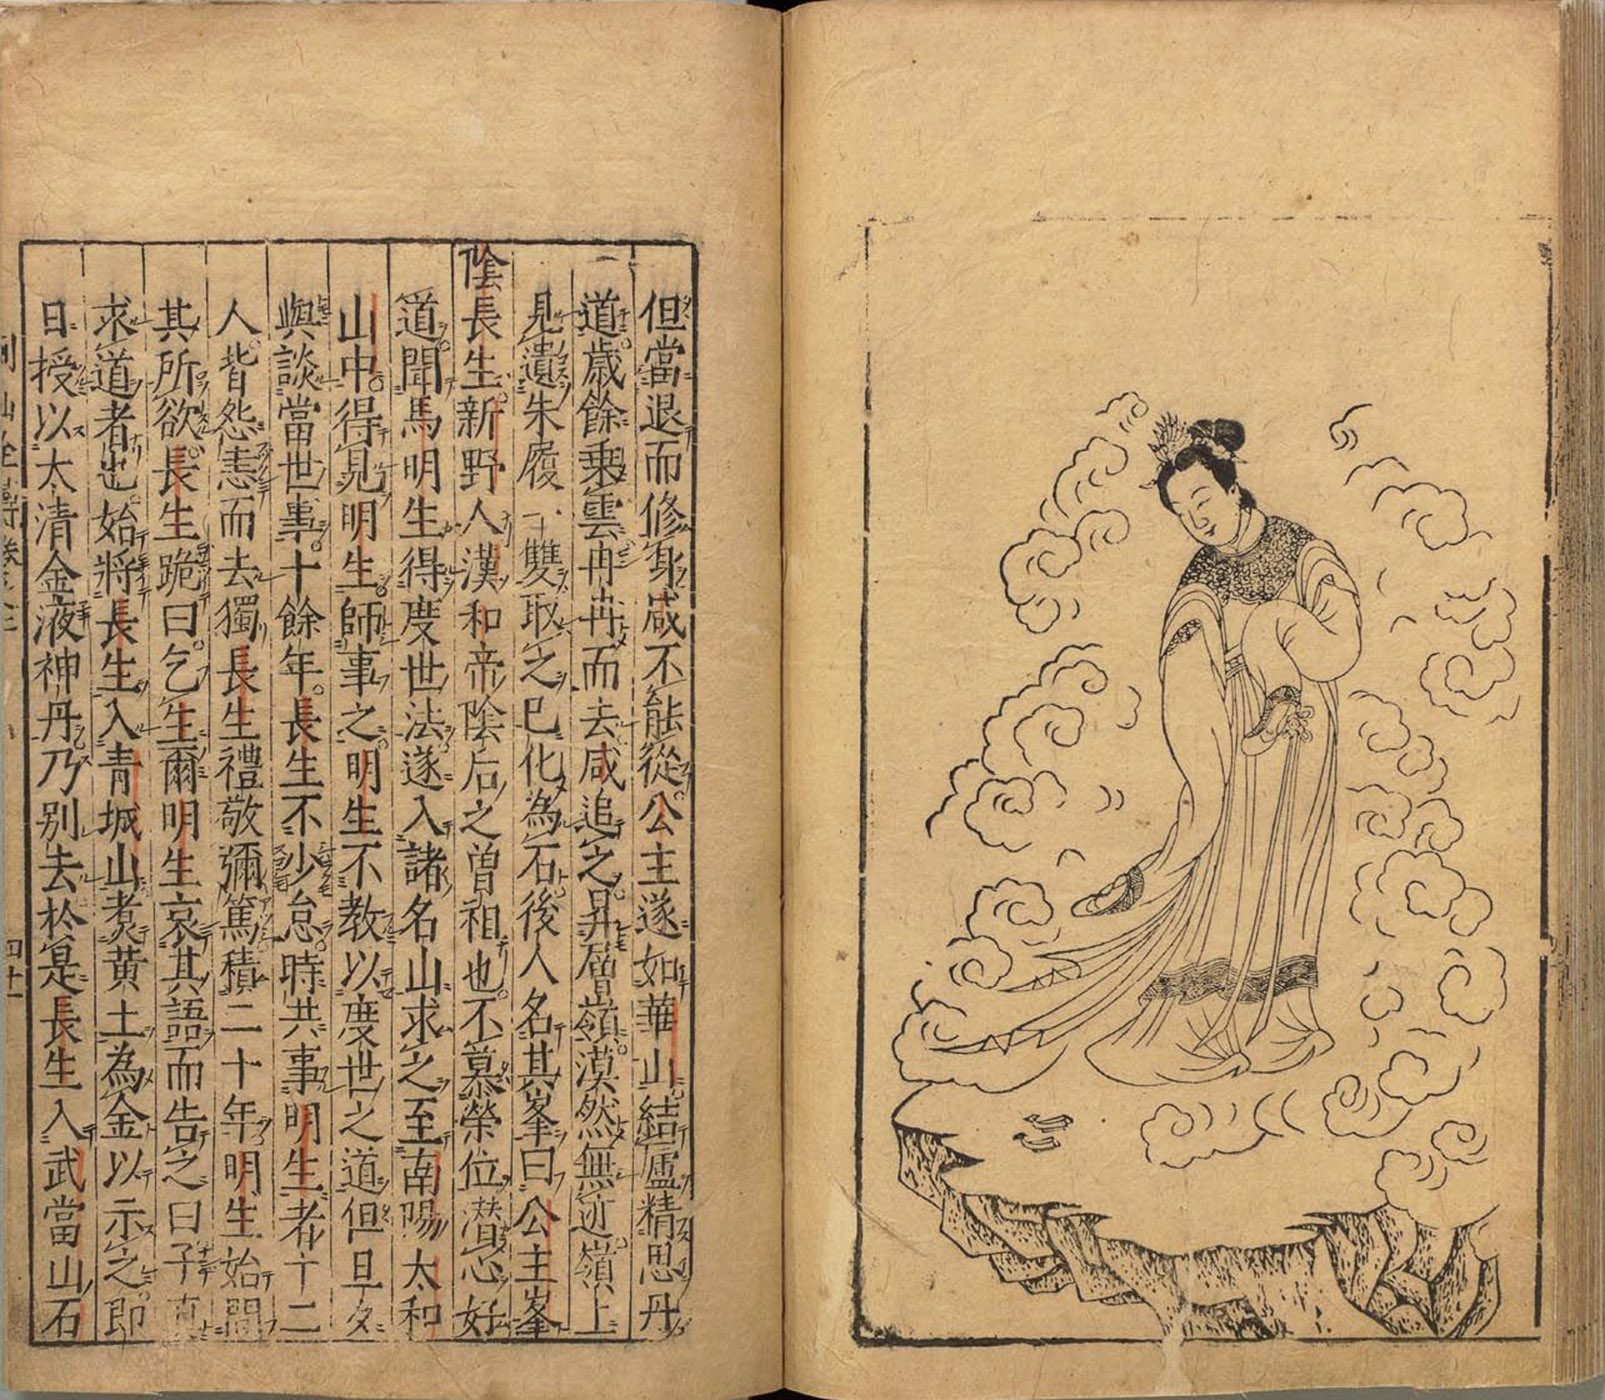 但當退而修身咸不能從公主遂如華山結廬精思丹
道歲餘乗雲冉冉而去咸追之昇層嶺漠然無迹嶺上
見遺朱履一雙取之已化為石後人名其峯曰公主峯
陰長生新野人漢和帝陰后之曾祖也不慕榮位潜心好
道聞馬明生得度世法遂入諸名山求之至南陽太和
山中得見明生師事之明生不教以度世之道但旦夕
與談當世事十餘年長生不少怠時共事明生者十二
人皆怨恚而去獨長生禮敬彌篤積二十年明生始問
其所欲長生跪曰乞生爾明生哀其語而告之曰子真
求道者也始將長生入青城山煮黄土為金以示之即
日授以太清金液神丹乃别去於是長生入武當山石
列仙全傳卷之三
四十一